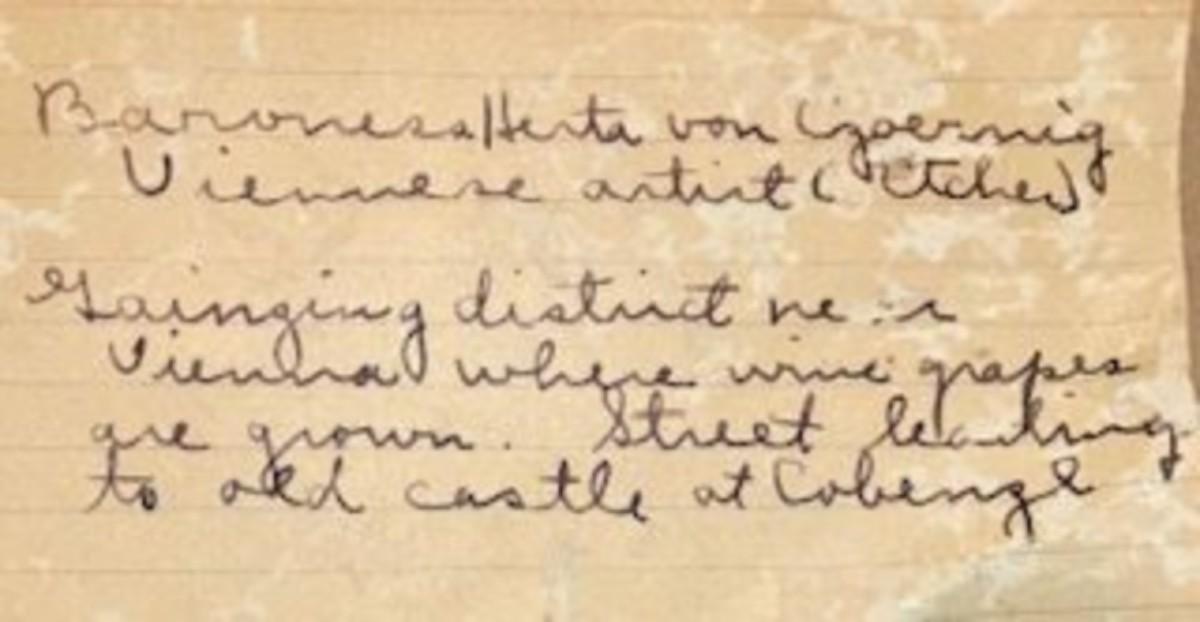 Baroness Herta von Czoernig
Viennese artist (Etcher)
Gainging district near
Vienna where wine grapes
are grown. Street leading
to old castle at Cobenzl